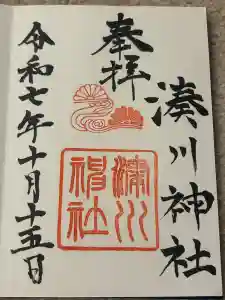 奉拝
湊川神社
湊川
神社
令和七年十月十五日